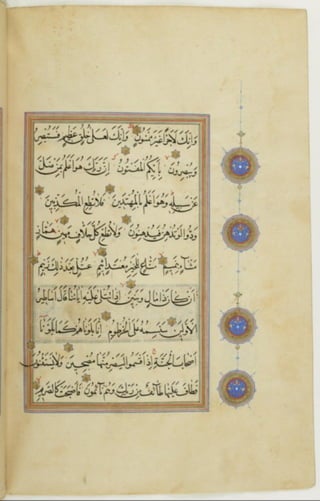 وَإِنَّ لَكَ لَأَجْرًا غَيْرَ مَمْنُونٍ وَإِنَّكَ لَعَلَىٰ خُلُقٍ عَظِيمٍ فَسَتُبْصِرُ
وَيُبْصِرُونَ بِأَيِّكُمُ الْمَفْتُونُ إِنَّ رَبَّكَ هُوَ أَعْلَمُ بِمَنْ ضَلَّ
عَنْ سَبِيلِهِ وَهُوَ أَعْلَمُ بِالْمُهْتَدِينَ فَلَا تُطِعِ الْمُكَذِّبِينَ
وَدُّوا لَوْ تُدْهِنُ فَيُدْهِنُونَ وَلَا تُطِعْ كُلَّ حَلَّافٍ مَهِينٍ هَمَّازٍ
مَشَّاءٍ بِنَمِيمٍ مَنَّاعٍ لِلْخَيْرِ مُعْتَدٍ أَثِيمٍ عُتُلٍّ بَعْدَ ذَٰلِكَ زَنِيمٍ
أَنْ كَانَ ذَا مَالٍ وَبَنِينَ إِذَا تُتْلَىٰ عَلَيْهِ آيَاتُنَا قَالَ أَسَاطِيرُ
الْأَوَّلِينَ سَنَسِمُهُ عَلَى الْخُرْطُومِ إِنَّا بَلَوْنَاهُمْ كَمَا بَلَوْنَا
أَصْحَابَ الْجَنَّةِ إِذْ أَقْسَمُوا لَيَصْرِمُنَّهَا مُصْبِحِينَ وَلَا يَسْتَثْنُونَ
فَطَافَ عَلَيْهَا طَائِفٌ مِنْ رَبِّكَ وَهُمْ نَائِمُونَ فَأَصْبَحَتْ كَالصَّرِيمِ